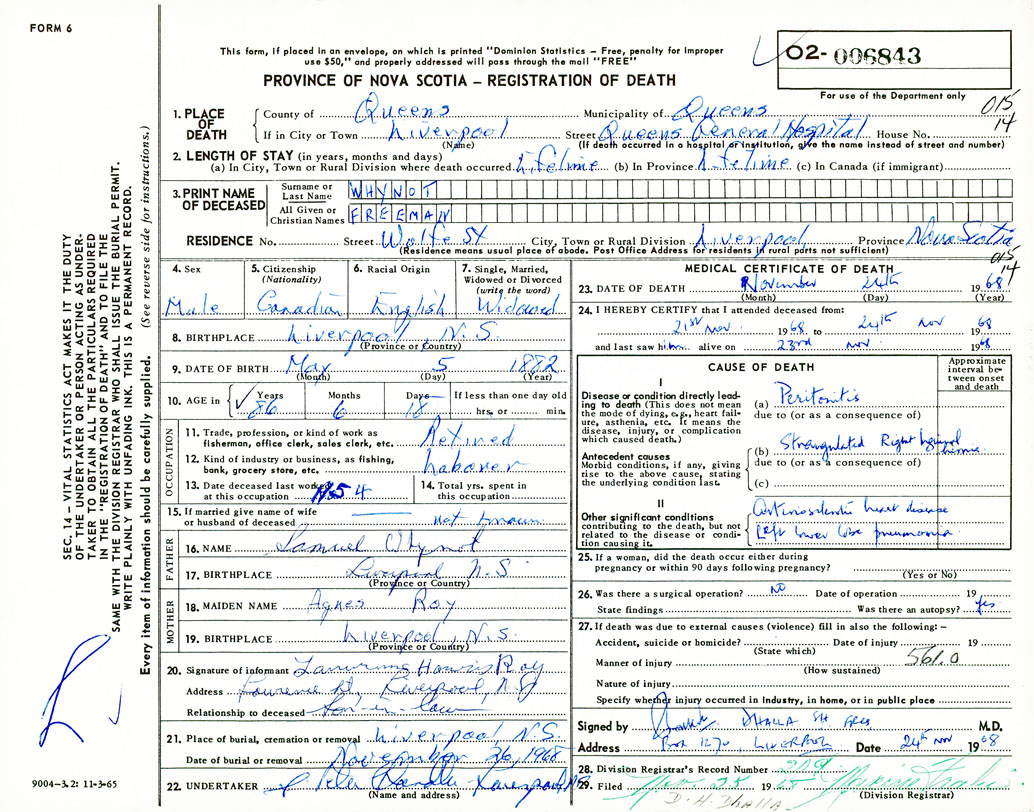 FORM 6
This form, if placed in an envelope, on which is printed "Dominion Statistics – Free, penalty for improper
use $50," and properly addressed will pass through the mail "FREE"
O2- 006843
PROVINCE OF NOVA SCOTIA – REGISTRATION OF DEATH
For use of the Department only
015
14
1. PLACE OF DEATH
County of Queens Municipality of Queens
If in City or Town Liverpool Street Queens General Hospital House No.
(Name) (If death occurred in a hospital or institution, give the name instead of street and number)
2. LENGTH OF STAY (in years, months and days)
(a) In City, Town or Rural Division where death occurred Lifetime (b) In Province Lifetime (c) In Canada (if immigrant)
3. PRINT NAME OF DECEASED
Surname or Last Name WHYNOT
All Given or Christian Names FREEMAN
RESIDENCE No. Street Wolfe St City, Town or Rural Division Liverpool Province Nova Scotia
(Residence means usual place of abode. Post Office Address for residents in rural parts not sufficient)
015
14
4. Sex
Male
5. Citizenship
(Nationality)
Canadian
6. Racial Origin
English
7. Single, Married,
Widowed or Divorced
(write the word)
Widowed
8. BIRTHPLACE Liverpool N.S.
(Province or Country)
9. DATE OF BIRTH May 5 1882
(Month) (Day) (Year)
10. AGE in Years Months Days If less than one day old
86 6 18 hrs. or min.
OCCUPATION
11. Trade, profession, or kind of work as
fisherman, office clerk, sales clerk, etc. Retired
12. Kind of industry or business, as fishing,
bank, grocery store, etc. Labourer
13. Date deceased last worked
at this occupation 1954
14. Total yrs. spent in
this occupation
15. If married give name of wife
or husband of deceased not known
FATHER
16. NAME Samuel Whynot
17. BIRTHPLACE Liverpool N.S.
(Province or Country)
MOTHER
18. MAIDEN NAME Agnes Roy
19. BIRTHPLACE Liverpool, N.S.
(Province or Country)
20. Signature of informant Harris Roy
Address Liverpool, N.S
Relationship to deceased Son-in-law
21. Place of burial, cremation or removal Liverpool N.S.
Date of burial or removal November 26, 1968
22. UNDERTAKER Liverpool, NS
(Name and address)
MEDICAL CERTIFICATE OF DEATH
23. DATE OF DEATH November 24th 1968
(Month) (Day) (Year)
24. I HEREBY CERTIFY that I attended deceased from:
21st Nov 1968 to 24th Nov 1968
and last saw him alive on 23rd Nov. 1968
CAUSE OF DEATH
Approximate
interval be-
tween onset
and death
I
Disease or condition directly lead-
ing to death (This does not mean
the mode of dying, e.g., heart fail-
ure, asthenia, etc. It means the
disease, injury, or complication
which caused death.)
(a) Peritonitis
due to (or as a consequence of)
Antecedent causes
Morbid conditions, if any, giving
rise to the above cause, stating
the underlying condition last.
(b) Strangulated Right Inguinal hernia
due to (or as a consequence of)
(c)
II
Other significant conditions
contributing to the death, but not
related to the disease or condi-
tion causing it.
Arteriosclerotic heart disease
Left lower lobe pneumonia
25. If a woman, did the death occur either during
pregnancy or within 90 days following pregnancy?
(Yes or No)
26. Was there a surgical operation? NO Date of operation 19
State findings Was there an autopsy? Yes
27. If death was due to external causes (violence) fill in also the following: –
Accident, suicide or homicide? Date of injury 19
(State which)
561.0
Manner of injury
(How sustained)
Nature of injury
Specify whether injury occurred in industry, in home, or in public place
Signed by DHALLA SH M.D.
Address Box 1270, LIVERPOOL Date 24th Nov 1968
28. Division Registrar's Record Number 209
29. Filed Nov. 25 1968
(Division Registrar)
D. H. Dhalla
SEC. 14 – VITAL STATISTICS ACT MAKES IT THE DUTY
OF THE UNDERTAKER OR PERSON ACTING AS UNDER-
TAKER TO OBTAIN ALL THE PARTICULARS REQUIRED
IN THE "REGISTRATION OF DEATH" AND TO FILE THE
SAME WITH THE DIVISION REGISTRAR WHO SHALL ISSUE THE BURIAL PERMIT.
WRITE PLAINLY WITH UNFADING INK. THIS IS A PERMANENT RECORD.
Every item of information should be carefully supplied. (See reverse side for instructions.)
9004–3.2: 11-3-65